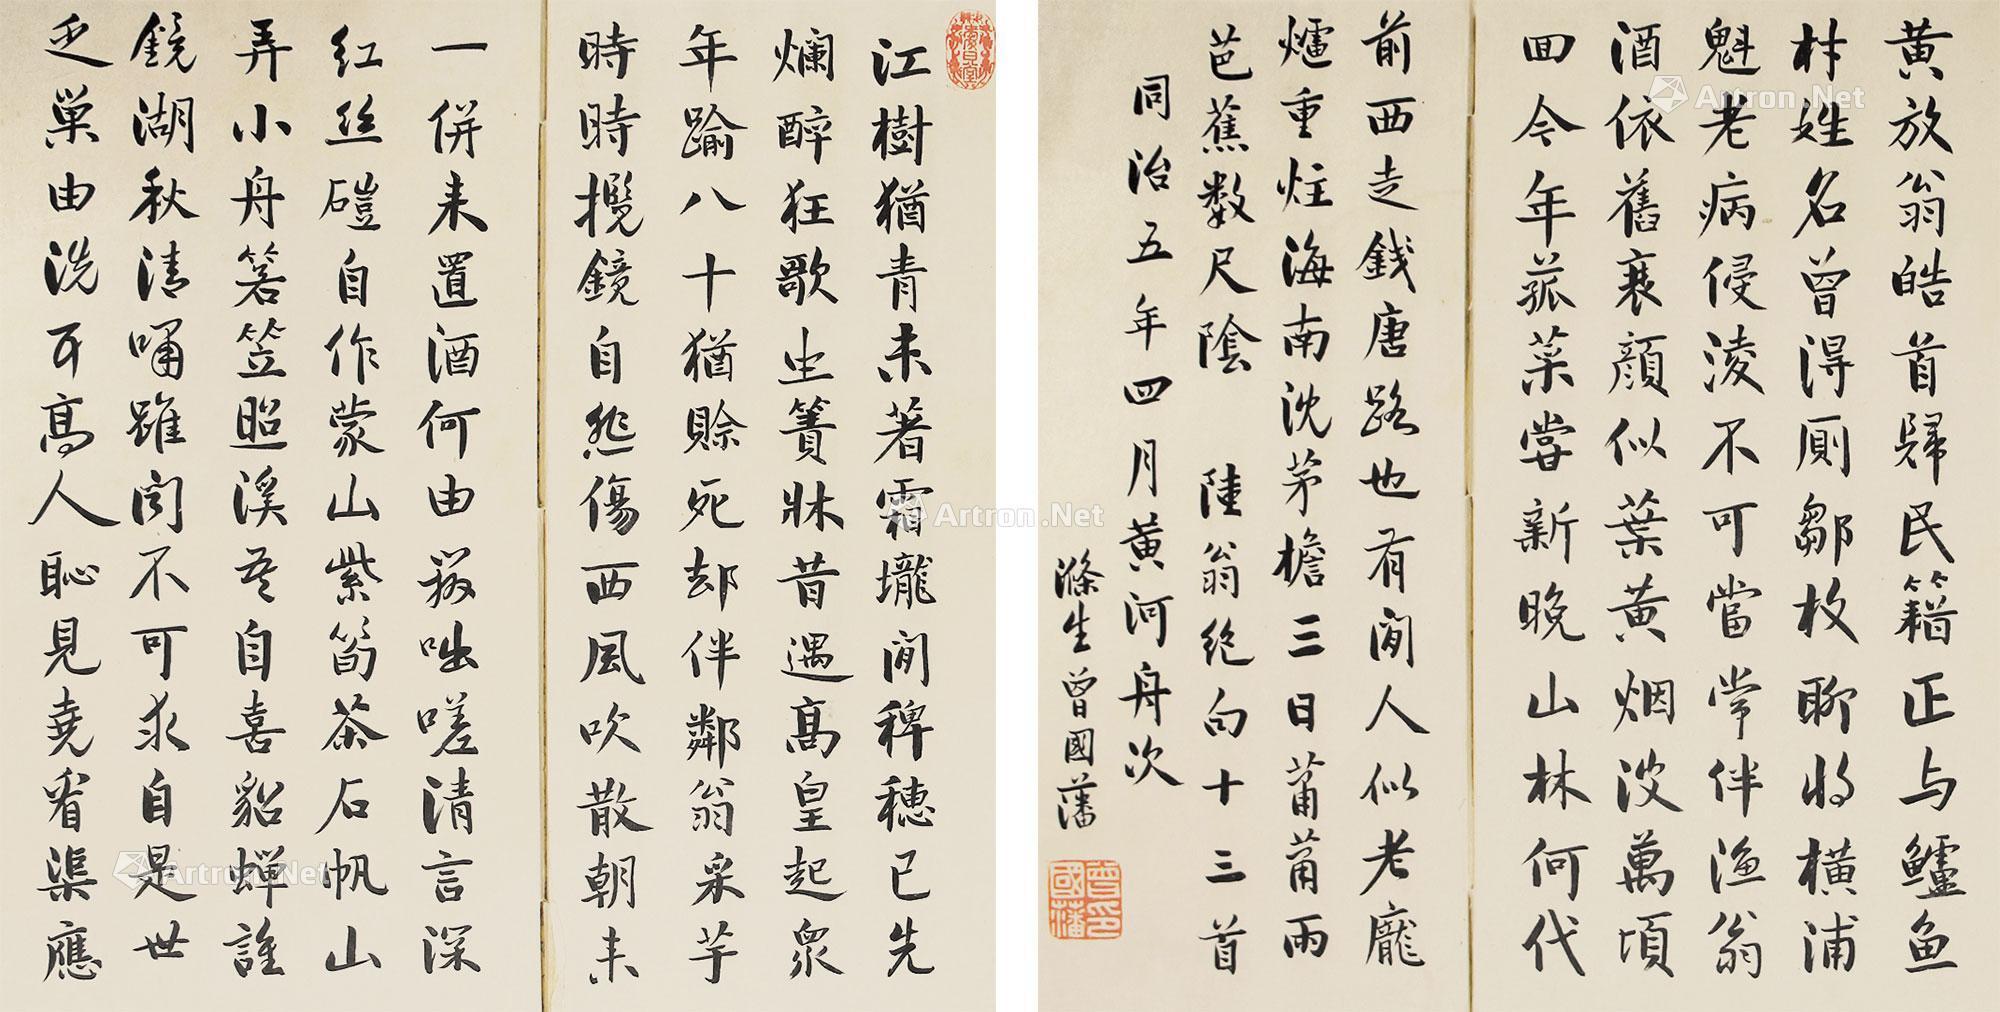 江樹猶青未著霜壠間稗穗已先
爛醉狂歌坐簣牀昔遇高皇起眾
年踰八十猶賒死却伴鄰翁采芋
時時攬鏡自悲傷西風吹散朝未
一併来置酒何由發咄嗟清言深
红丝磑自作蒙山紫筍茶石帆山
弄小舟箬笠照溪吾自喜貂蝉誰
鏡湖秋清嘯雖闻不可求自是世
乏巢由洗耳高人恥見堯看渠應
黄放翁皓首歸民籍正与鱸鱼
村姓名曾得厠鄒枚聊將横浦
魁老病侵凌不可當常伴漁翁
酒依舊衰顔似葉黄烟波萬頃
回今年菰菜嘗新晚山林何代
前西走錢唐路也有閒人似老龐
爐重炷海南沈茅檐三日莆莆雨
芭蕉數尺陰 陸翁絶句十三首
同治五年四月黄河舟次
滌生曾國藩
曾國藩印
Artron.Net
Artron.Net
Artron.Net